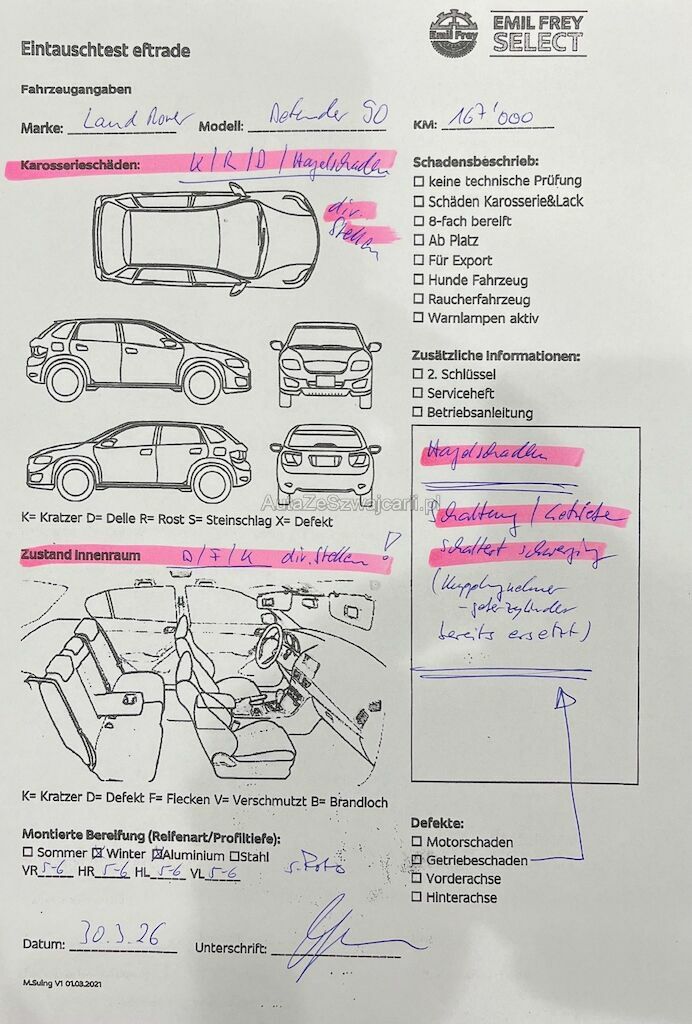 EMIL FREY
SELECT
Emil Frey
Eintauschtest eftrade
Fahrzeugangaben
Marke: Land Rover Modell: Defender 90 KM: 167'000
Karosserieschäden: K/R/D/Hagelschaden
div.
Stellen
Schadensbeschrieb:
☐ keine technische Prüfung
☐ Schäden Karosserie&Lack
☐ 8-fach bereift
☐ Ab Platz
☐ Für Export
☐ Hunde Fahrzeug
☐ Raucherfahrzeug
☐ Warnlampen aktiv
Zusätzliche Informationen:
☐ 2. Schlüssel
☐ Serviceheft
☐ Betriebsanleitung
Hagelschaden
Schaltung / Getriebe
schaltet schwierig
(Kupplungnehmer
-geberzylinder
bereits ersetzt)
AutaZeSzwajcarii.pl
K= Kratzer D= Delle R= Rost S= Steinschlag X= Defekt
Zustand Innenraum D/F/K div. Stellen !
K= Kratzer D= Defekt F= Flecken V= Verschmutzt B= Brandloch
Montierte Bereifung (Reifenart/Profiltiefe):
☐ Sommer ☒ Winter ☒ Aluminium ☐ Stahl
VR 5-6 HR 5-6 HL 5-6 VL 5-6 s. Foto
Defekte:
☐ Motorschaden
☒ Getriebeschaden
☐ Vorderachse
☐ Hinterachse
Datum: 30.3.26 Unterschrift:
M.Suing V1 01.03.2021